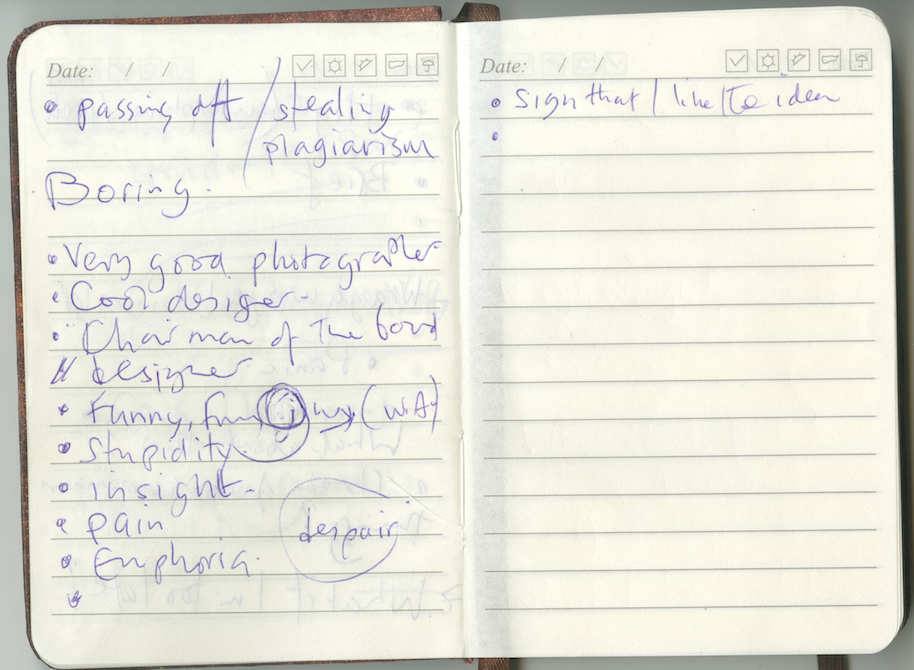 Date: / /
passing off / stealing
plagiarism
Boring.
Very good photographer
Cool designer.
Chairman of The board
designer
Funny, (WAY)
Stupidity.
insight.
pain
despair
Euphoria.
Date: / /
sign that I like The idea